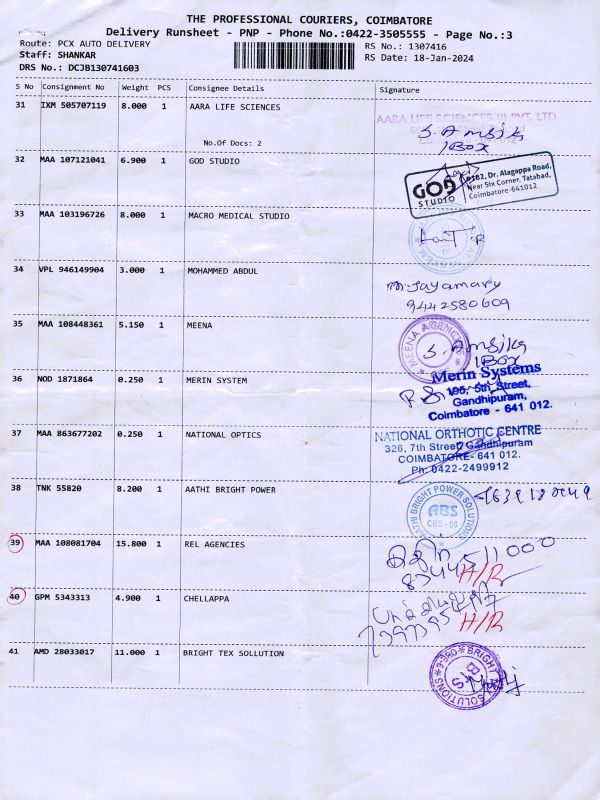 THE PROFESSIONAL COURIERS, COIMBATORE
Delivery Runsheet - PNP - Phone No.:0422-3505555 - Page No.:3
Route: PCX AUTO DELIVERY
RS No.: 1307416
Staff: SHANKAR
RS Date: 18-Jan-2024
DRS No.: DCJB130741603
S No Consignment No Weight PCS Consignee Details Signature
31 IXM 505707119 8.000 1 AARA LIFE SCIENCES
AARA LIFE SCIENCES (I) PVT. LTD
No.Of Docs: 2
1BOX
32 MAA 107121041 6.900 1 GOD STUDIO
GOD STUDIO
#182, Dr. Alagappa Road,
Near Six Corner, Tatabad,
Coimbatore-641012
33 MAA 103196726 8.000 1 MACRO MEDICAL STUDIO
34 VPL 946149904 3.000 1 MOHAMMED ABDUL
M. Jayamary
9442580609
35 MAA 108448361 5.150 1 MEENA
MEENA AGENCIES
1BOX
36 NOD 1871864 0.250 1 MERIN SYSTEM
Merin Systems
106, 5th Street,
Gandhipuram,
Coimbatore - 641 012.
37 MAA 863677202 0.250 1 NATIONAL OPTICS
NATIONAL ORTHOTIC CENTRE
326, 7th Street, Gandhipuram
COIMBATORE- 641 012.
Ph: 0422-2499912
38 TNK 55820 8.200 1 AATHI BRIGHT POWER
AATHI BRIGHT POWER SOLUTIONS
ABS
CBE - 06
39 MAA 108081704 15.800 1 REL AGENCIES
H/R
40 GPM 5343313 4.900 1 CHELLAPPA
H/R
41 AMD 28033017 11.000 1 BRIGHT TEX SOLLUTION
BTS